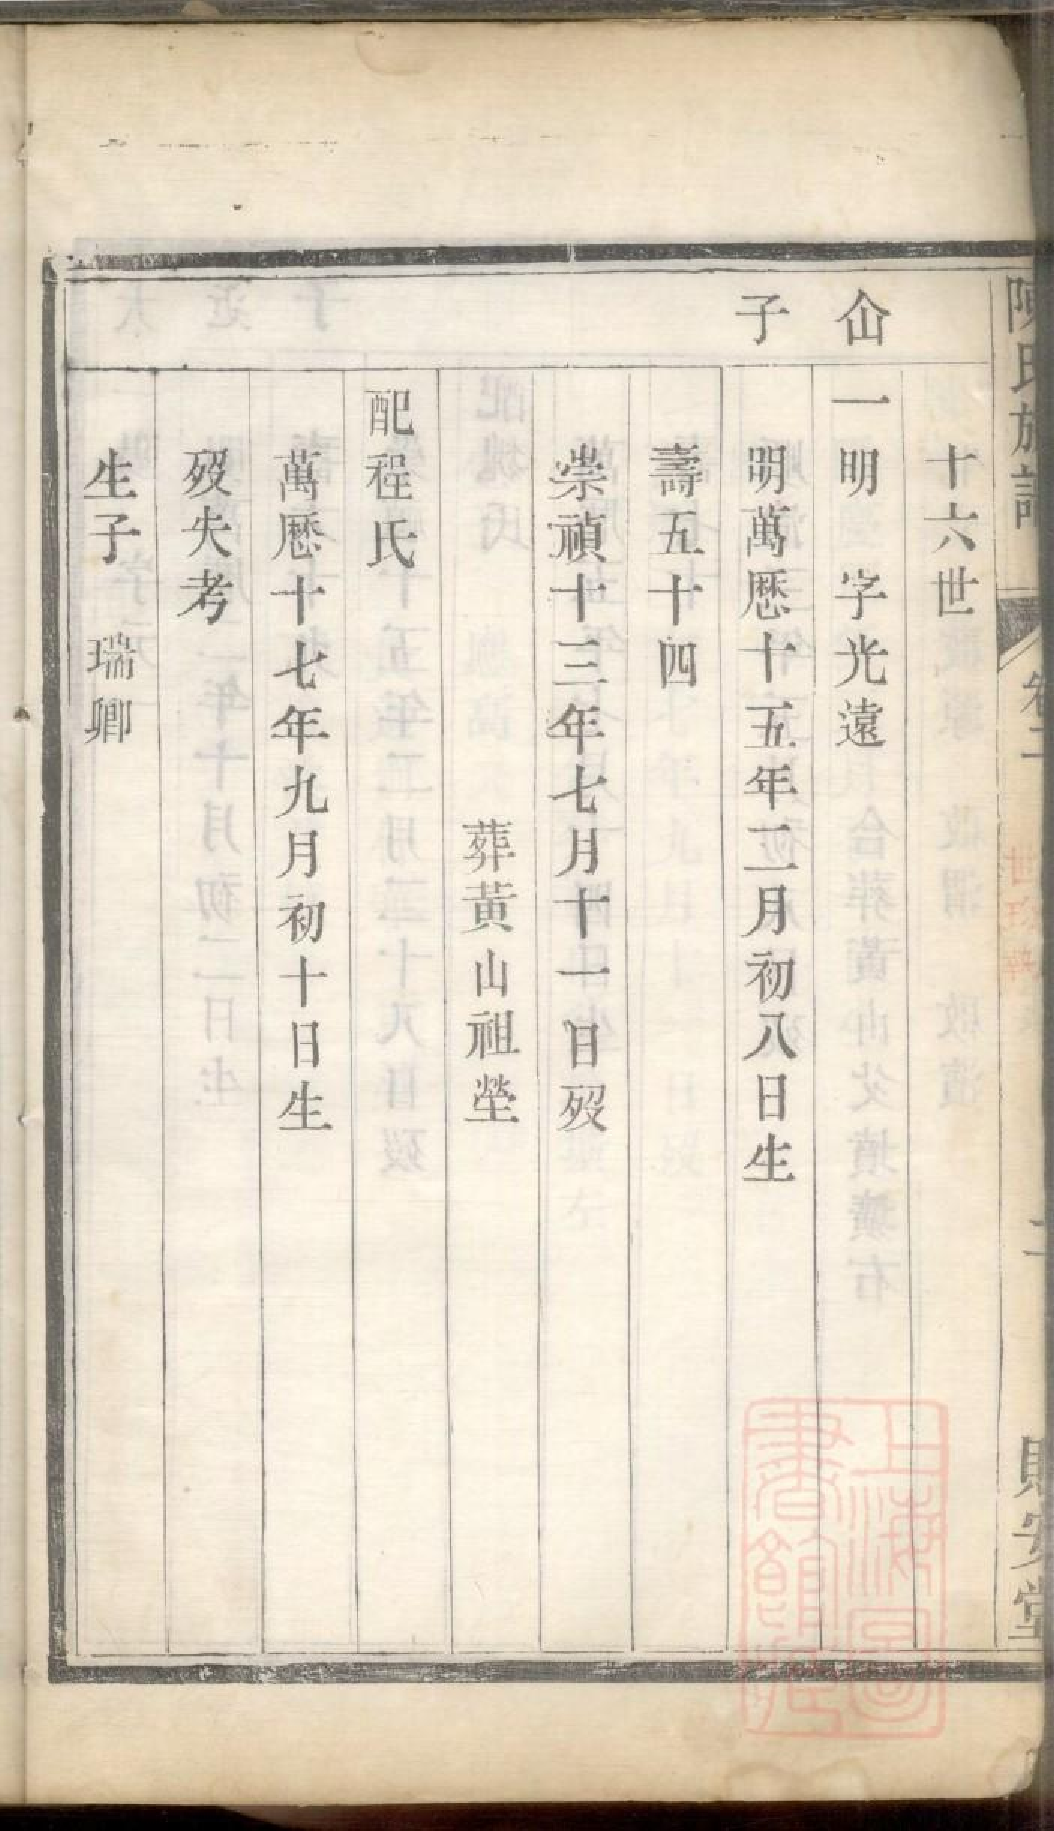 十六世
仚 一明 字光遠
子 明萬曆十五年二月初八日生
壽五十四
崇禎十三年七月十一日歿
葬黃山祖塋
配程氏
萬曆十七年九月初十日生
歿失考
生子 瑞卿
陳氏族譜 卷二 二 貽安堂
上海圖書館藏